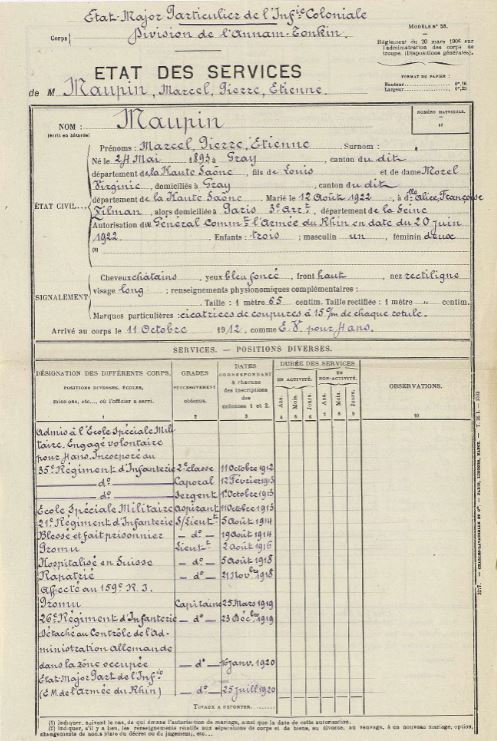 Etat-Major Particulier de l'Inf^ie Coloniale
Corps
Division de l'Annam-Tonkin.
MODÈLE N° 55.
Règlement du 20 mars 1906 sur l'administration des corps de troupe
FORMAT DU PAPIER :
Hauteur
Largeur
ETAT DES SERVICES
de M Maupin, Marcel, Pierre, Etienne.
NUMÉRO MATRICULE.
NOM : Maupin
Prénoms : Marcel, Pierre, Etienne Surnom :
Né le 24 Mai 1893 à Gray, canton du dit
département de la Haute Saône, fils de Louis et de dame Morel
Virginie, domiciliés à Gray, canton du dit
département de la Haute Saône. Marié le 12 Août 1922, à d^lle Alice, Françoise
ÉTAT CIVIL
Tilman, alors domiciliés à Paris 5^e arr^t, département de la Seine
Autorisation du Général Comm^t l'Armée du Rhin en date du 20 juin
1922. Enfants : trois ; masculin un, féminin deux
SIGNALEMENT
Cheveux châtains, yeux bleu foncé, front haut, nez rectiligne
visage long ; renseignements physionomiques complémentaires :
Taille : 1 mètre 65 centim. Taille rectifiée : 1 mètre " centim.
Marques particulières : cicatrices de coupures à 15 c/m de chaque rotule.
Arrivé au corps le 11 Octobre 1912, comme E.V. pour 4 ans.
SERVICES. — POSITIONS DIVERSES.
DÉSIGNATION DES DIFFÉRENTS CORPS,
POSITIONS DIVERSES, ÉCOLES,
Etats-majors, etc., où l'officier a servi.
GRADES
successivement
obtenus.
DATES
CORRESPONDANT
à chacune
des inscriptions
des colonnes 1 et 2.
DURÉE DES SERVICES
EN ACTIVITÉ.
EN NON-ACTIVITÉ.
Ans. Mois. Jours. Ans. Mois. Jours.
OBSERVATIONS.
1 2 3 4 5 6 7 8 9 10
Admis à l'Ecole Spéciale Mili-
taire. Engagé volontaire
pour 4 ans. Incorporé au
35^e Régiment d'Infanterie 2^e classe 11 Octobre 1912
— d° — Caporal 12 Février 1913
— d° — Sergent 1^er Octobre 1913
Ecole Spéciale Militaire Aspirant 11 Octobre 1913
21^e Régiment d'Infanterie S/Lieut^t 5 août 1914
Blessé et fait prisonnier — d° — 19 août 1914
Promu Lieut^t 2 août 1916
Hospitalisé en Suisse — d° — 5 août 1918
Rapatrié — d° — 21 Nov^bre 1918
Affecté au 159^e R.I.
Promu Capitaine 25 Mars 1919
26^e Régiment d'Infanterie — d° — 23 Déc^bre 1919
Détaché au Contrôle de l'Ad-
ministration allemande
dans la zône occupée — d° — 16 janv. 1920
Etat-Major Part de l'Inf^ie
(E.M. de l'Armée du Rhin) — d° — 25 juill^t 1920
TOTAUX A REPORTER
(1) Indiquer, suivant le cas, de qui émane l'autorisation de mariage, ainsi que la date de cette autorisation.
(2) Indiquer, s'il y a lieu, les renseignements relatifs aux séparations de corps et de biens, au divorce, au veuvage, à un nouveau mariage, option,
changements de nom